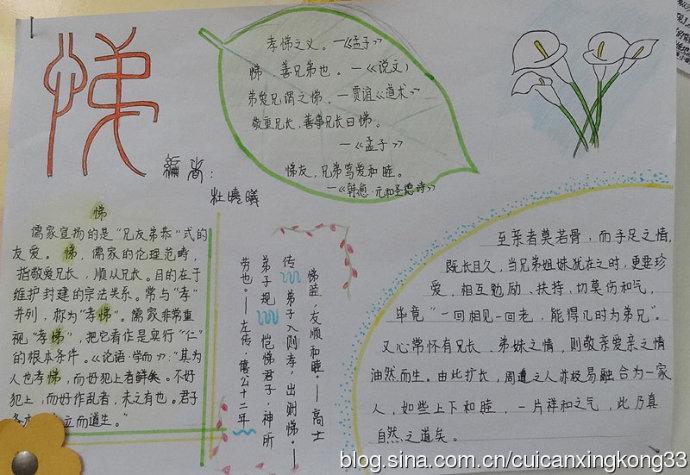 悌
编者：
杜曉曦
孝悌之义。—《孟子》
悌 善兄弟也。—《说文》
弟爱兄谓之悌。—贾谊《道术》
敬重兄长，善事兄长曰悌。
—《孟子》
悌友，兄弟笃爱和睦。
—《韩愈·元和圣德诗》
悌
儒家宣扬的是“兄友弟恭”式的
友爱。悌，儒家的伦理范畴，
指敬爱兄长，顺从兄长。目的在于
维护封建的宗法关系。常与“孝”
并列，称为“孝悌”。儒家非常重
视“孝悌”，把它看作是实行“仁”
的根本条件。《论语·学而》：“其为
人也孝悌，而好犯上者鲜矣。不好
犯上，而好作乱者，未之有也。君子
立而道生。”
悌益，友顺和睦。—高士
传 弟子入则孝，出则悌—
弟子规 恺悌君子，神所
劳也。—左传·僖公十二年
至亲者莫若骨，而手足之情，
既长且久，当兄弟姐妹犹在之时，更要珍
爱，相互勉励、扶持，切莫伤和气，
毕竟“一回相见一回老，能得几时为弟兄”。
又心常怀有兄长、弟妹之情，则敬亲爱亲之情
油然而生。由此扩长，周遭之人亦极易融合为一家
人，如些上下和睦，一片祥和之气，此乃真
自然之道矣。
blog.sina.com.cn/cuicanxingkong33